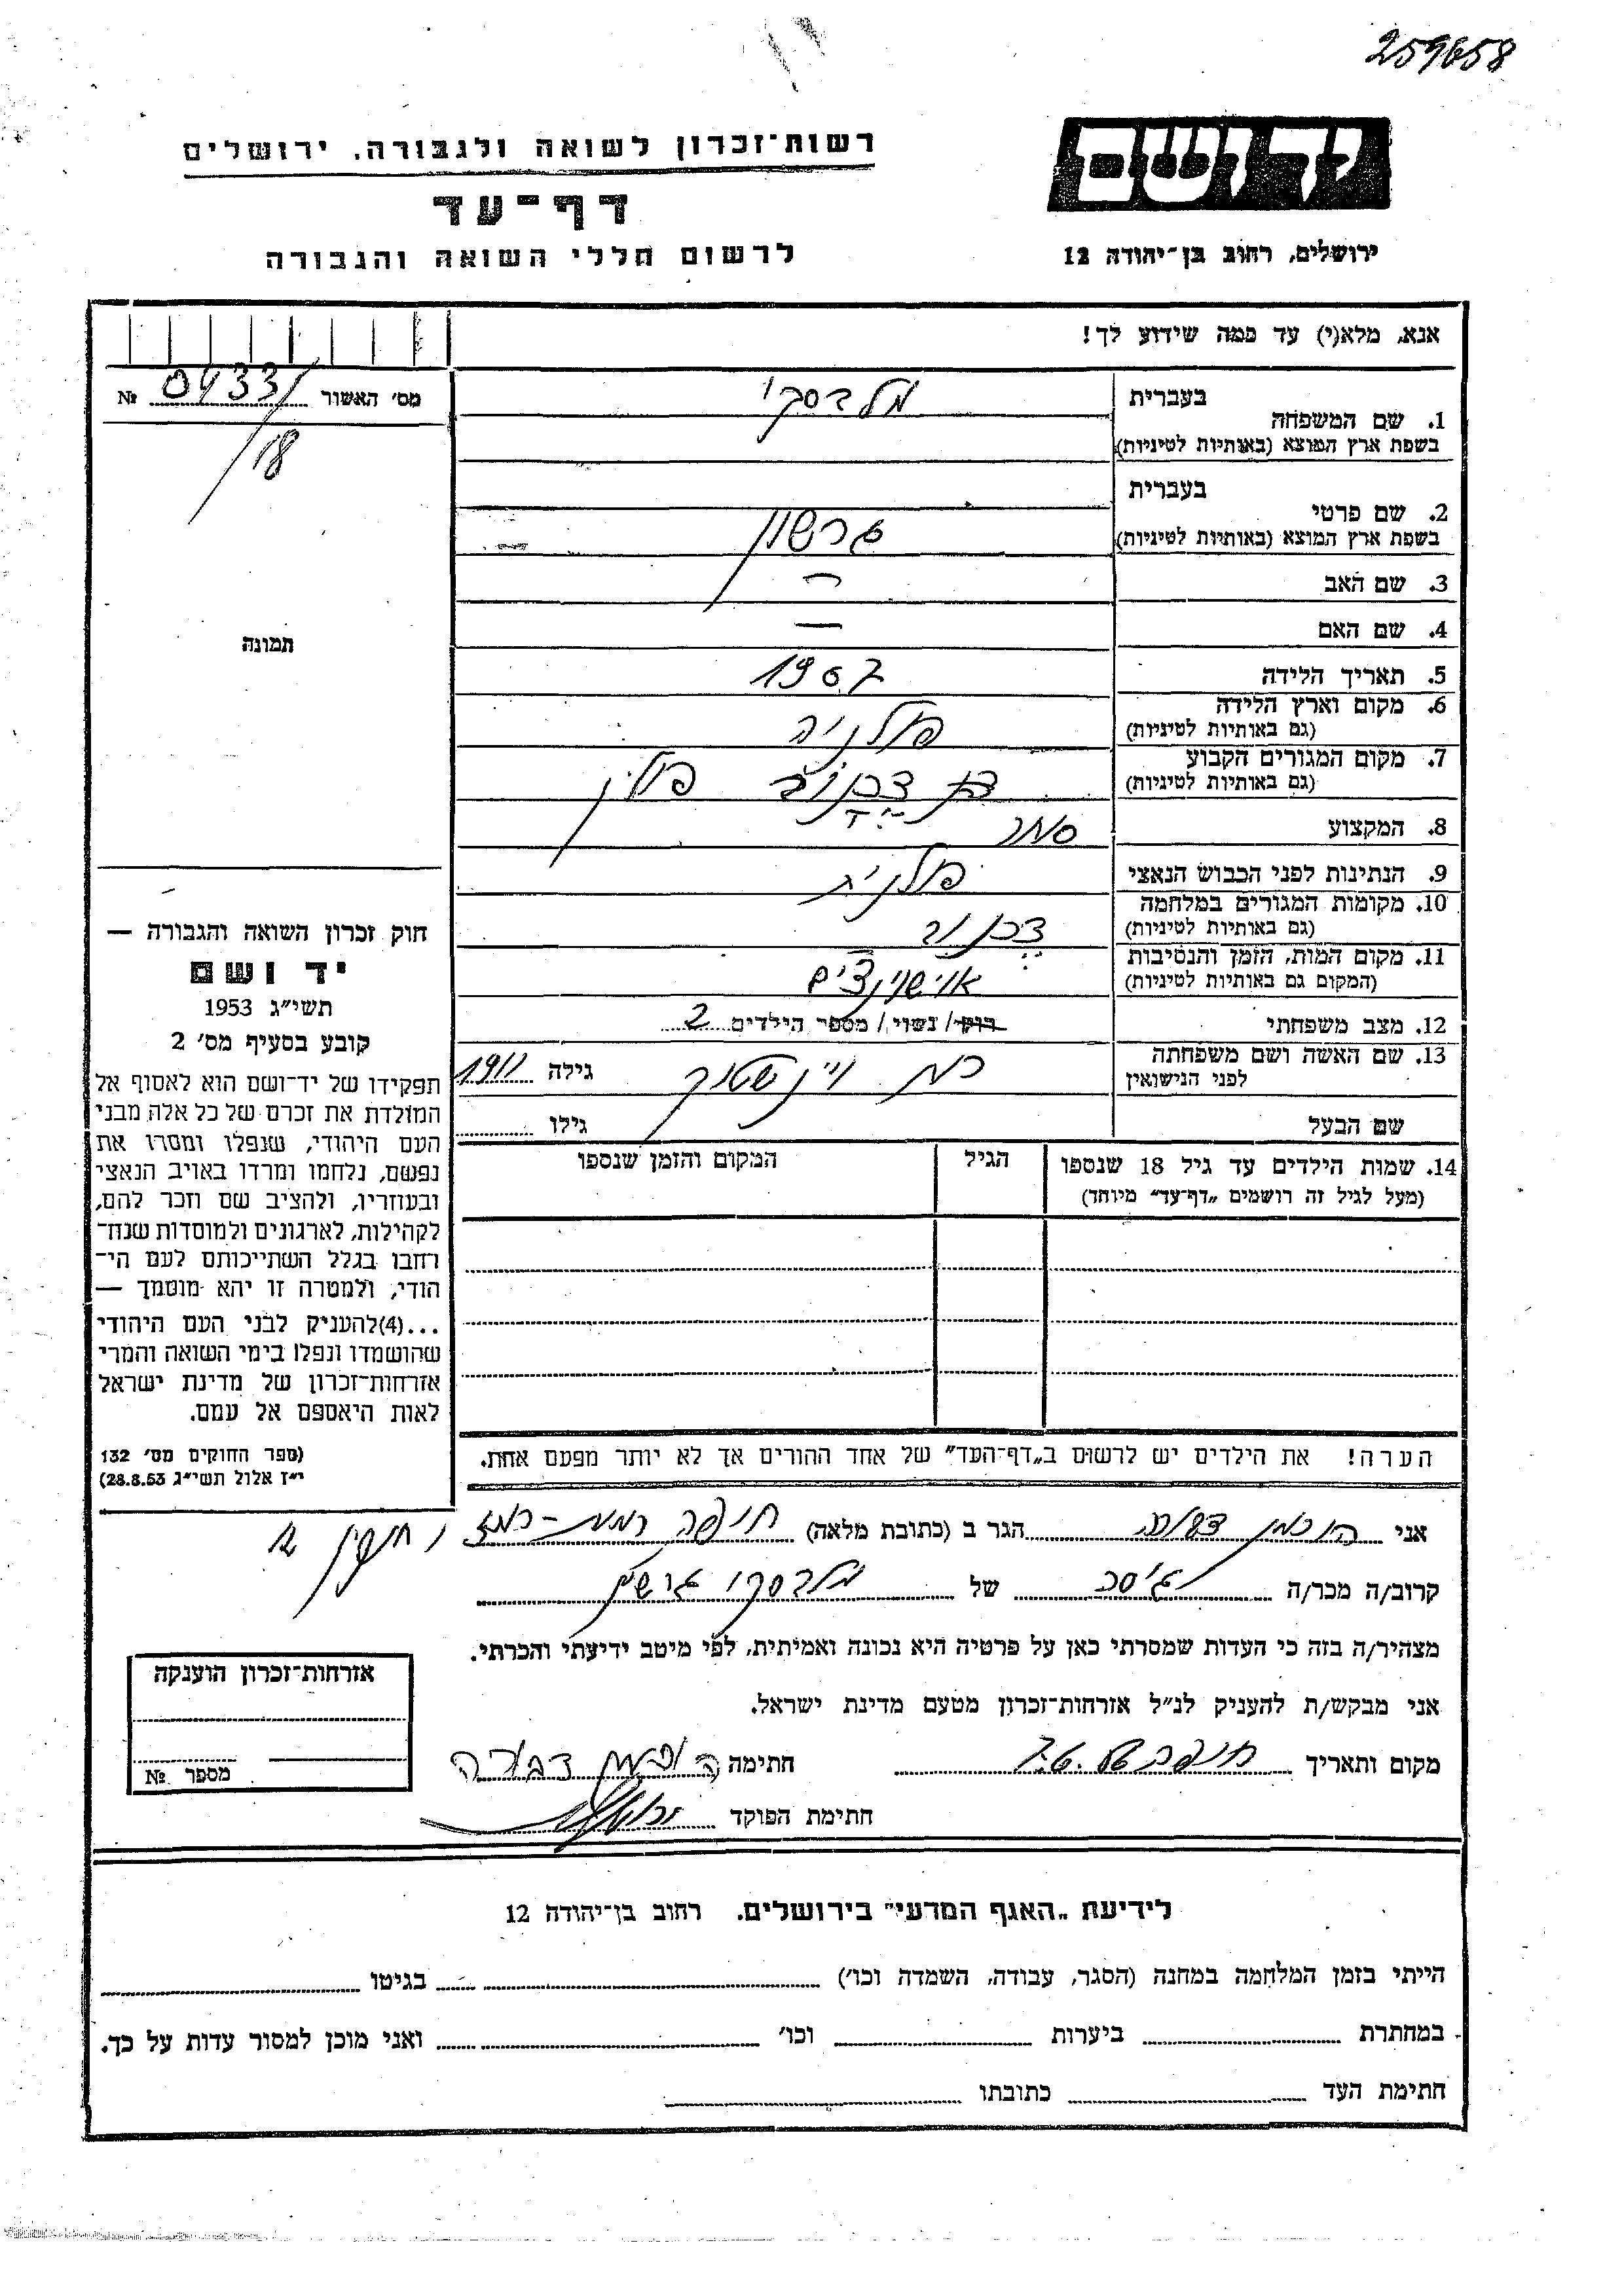 259658
יד ושם
רשות־זכרון לשואה ולגבורה, ירושלים
דף־עד
ירושלים, רחוב בן־יהודה 12
לרשום חללי השואה והגבורה
אנא, מלא(י) עד כמה שידוע לך!
מס' האשור 04331 №
/18
תמונה
בעברית
1. שם המשפחה
בשפת ארץ המוצא (באותיות לטיניות)
בעברית
2. שם פרטי גרשון
בשפת ארץ המוצא (באותיות לטיניות)
3. שם האב —
4. שם האם —
5. תאריך הלידה 1907
6. מקום וארץ הלידה פולניה
(גם באותיות לטיניות)
7. מקום המגורים הקבוע פולין
(גם באותיות לטיניות)
8. המקצוע סוחר
9. הנתינות לפני הכבוש הנאצי פולנית
10. מקומות המגורים במלחמה
(גם באותיות לטיניות)
11. מקום המות, הזמן והנסיבות
(המקום גם באותיות לטיניות)
12. מצב משפחתי רוק/ נשוי/ מספר הילדים 2
13. שם האשה ושם משפחתה גילה 1911
לפני הנישואין
שם הבעל גילו
14. שמות הילדים עד גיל 18 שנספו הגיל המקום והזמן שנספו
(מעל לגיל זה רושמים „דף־עד” מיוחד)
הערה! את הילדים יש לרשום ב„דף־העד” של אחד ההורים אך לא יותר מפעם אחת.
חוק זכרון השואה והגבורה —
יד ושם
תשי״ג 1953
קובע בסעיף מס' 2
תפקידו של יד־ושם הוא לאסוף אל
המולדת את זכרם של כל אלה מבני
העם היהודי, שנפלו ומסרו את
נפשם, נלחמו ומרדו באויב הנאצי
ובעוזריו, ולהציב שם וזכר להם,
לקהילות, לארגונים ולמוסדות שנח־
רחבו בגלל השתייכותם לעם הי־
הודי, ולמטרה זו יהא מוסמך —
...(4)להעניק לבני העם היהודי
שהושמדו ונפלו בימי השואה והמרי
אזרחות־זכרון של מדינת ישראל
לאות היאספם אל עמם.
(ספר החוקים מס' 132
י״ז אלול תשי״ג 28.8.53)
אני הגר ב (כתובת מלאה) חיפה רמת-רמז
קרוב/ה מכר/ה גיסה של
מצהיר/ה בזה כי העדות שמסרתי כאן על פרטיה היא נכונה ואמיתית, לפי מיטב ידיעתי והכרתי.
אני מבקש/ת להעניק לנ״ל אזרחות־זכרון מטעם מדינת ישראל.
מקום ותאריך חיפה חתימה דבורה
חתימת הפוקד
אזרחות־זכרון הוענקה
מספר №
לידיעת „האגף המדעי” בירושלים. רחוב בן־יהודה 12
הייתי בזמן המלחמה במחנה (הסגר, עבודה, השמדה וכו') בגיטו
במחתרת ביערות וכו' ואני מוכן למסור עדות על כך.
חתימת העד כתובתו